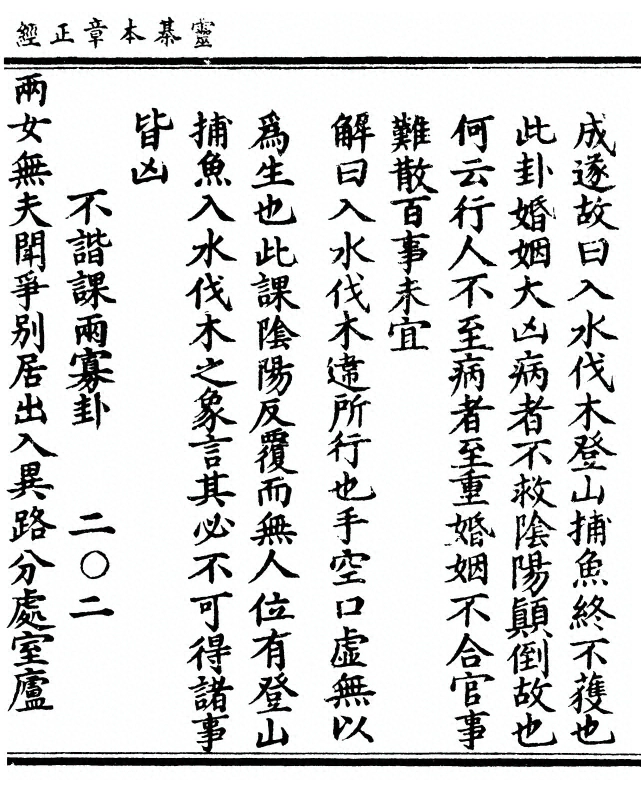 靈棊本章正經
成遂故曰入水伐木登山捕魚終不獲也
此卦婚姻大凶病者不救陰陽顛倒故也
何云行人不至病者至重婚姻不合官事
難散百事未宜
解曰入水伐木違所行也手空口虛無以
為生也此課陰陽反覆而無人位有登山
捕魚入水伐木之象言其必不可得諸事
皆凶
不諧課兩寡卦 二〇二
兩女無夫閧爭別居出入異路分處室廬